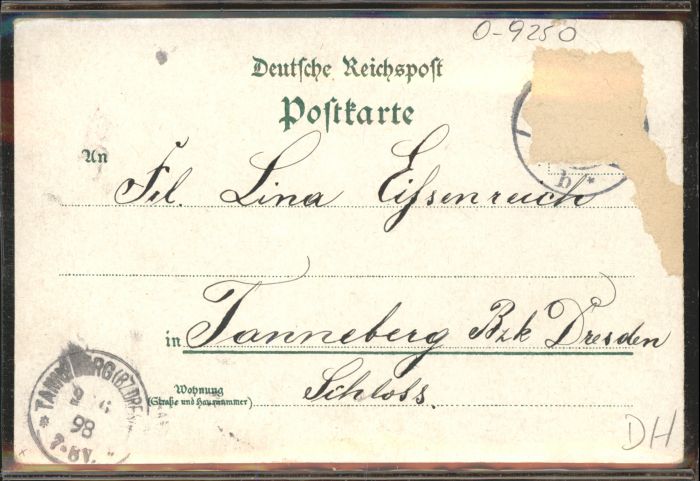 O-9250
Deutsche Reichspost
Postkarte
b *
An
Frl. Lina Eissenreich
in Tanneberg Bzk Dresden
Wohnung
(Straße und Hausnummer)
Schloss.
98
7-8V.
DH